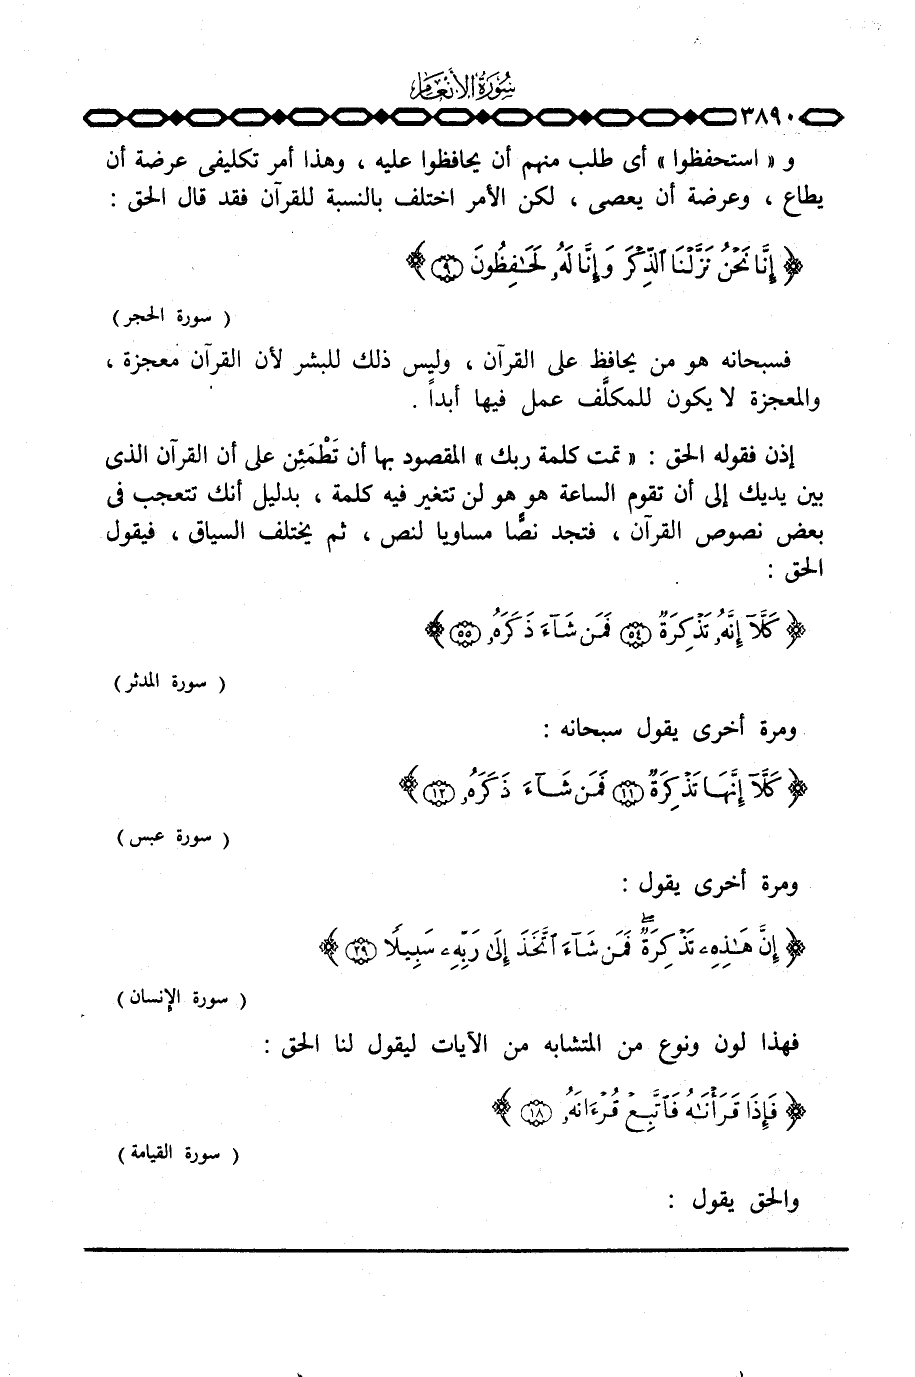 سُورَةُ الأَنْعَام
٣٨٩٠
و « استحفظوا » أى طلب منهم أن يحافظوا عليه ، وهذا أمر تكليفى عرضة أن
يطاع ، وعرضة أن يعصى ، لكن الأمر اختلف بالنسبة للقرآن فقد قال الحق :
﴿ إِنَّا نَحْنُ نَزَّلْنَا ٱلذِّكْرَ وَإِنَّا لَهُۥ لَحَـٰفِظُونَ ۝٩ ﴾
( سورة الحجر )
فسبحانه هو من يحافظ على القرآن ، وليس ذلك للبشر لأن القرآن معجزة ،
والمعجزة لا يكون للمكلَّف عمل فيها أبداً .
إذن فقوله الحق : « تمت كلمة ربك » المقصود بها أن تَطْمَئِن على أن القرآن الذى
بين يديك إلى أن تقوم الساعة هو هو لن تتغير فيه كلمة ، بدليل أنك تتعجب فى
بعض نصوص القرآن ، فتجد نصًّا مساويا لنص ، ثم يختلف السياق ، فيقول
الحق :
﴿ كَلَّآ إِنَّهُۥ تَذْكِرَةٌ ۝٥٤ فَمَن شَآءَ ذَكَرَهُۥ ۝٥٥ ﴾
( سورة المدثر )
ومرة أخرى يقول سبحانه :
﴿ كَلَّآ إِنَّهَا تَذْكِرَةٌ ۝١١ فَمَن شَآءَ ذَكَرَهُۥ ۝١٢ ﴾
( سورة عبس )
ومرة أخرى يقول :
﴿ إِنَّ هَـٰذِهِۦ تَذْكِرَةٌ ۖ فَمَن شَآءَ ٱتَّخَذَ إِلَىٰ رَبِّهِۦ سَبِيلًا ۝٢٩ ﴾
( سورة الإنسان )
فهذا لون ونوع من المتشابه من الآيات ليقول لنا الحق :
﴿ فَإِذَا قَرَأْنَـٰهُ فَٱتَّبِعْ قُرْءَانَهُۥ ۝١٨ ﴾
( سورة القيامة )
والحق يقول :